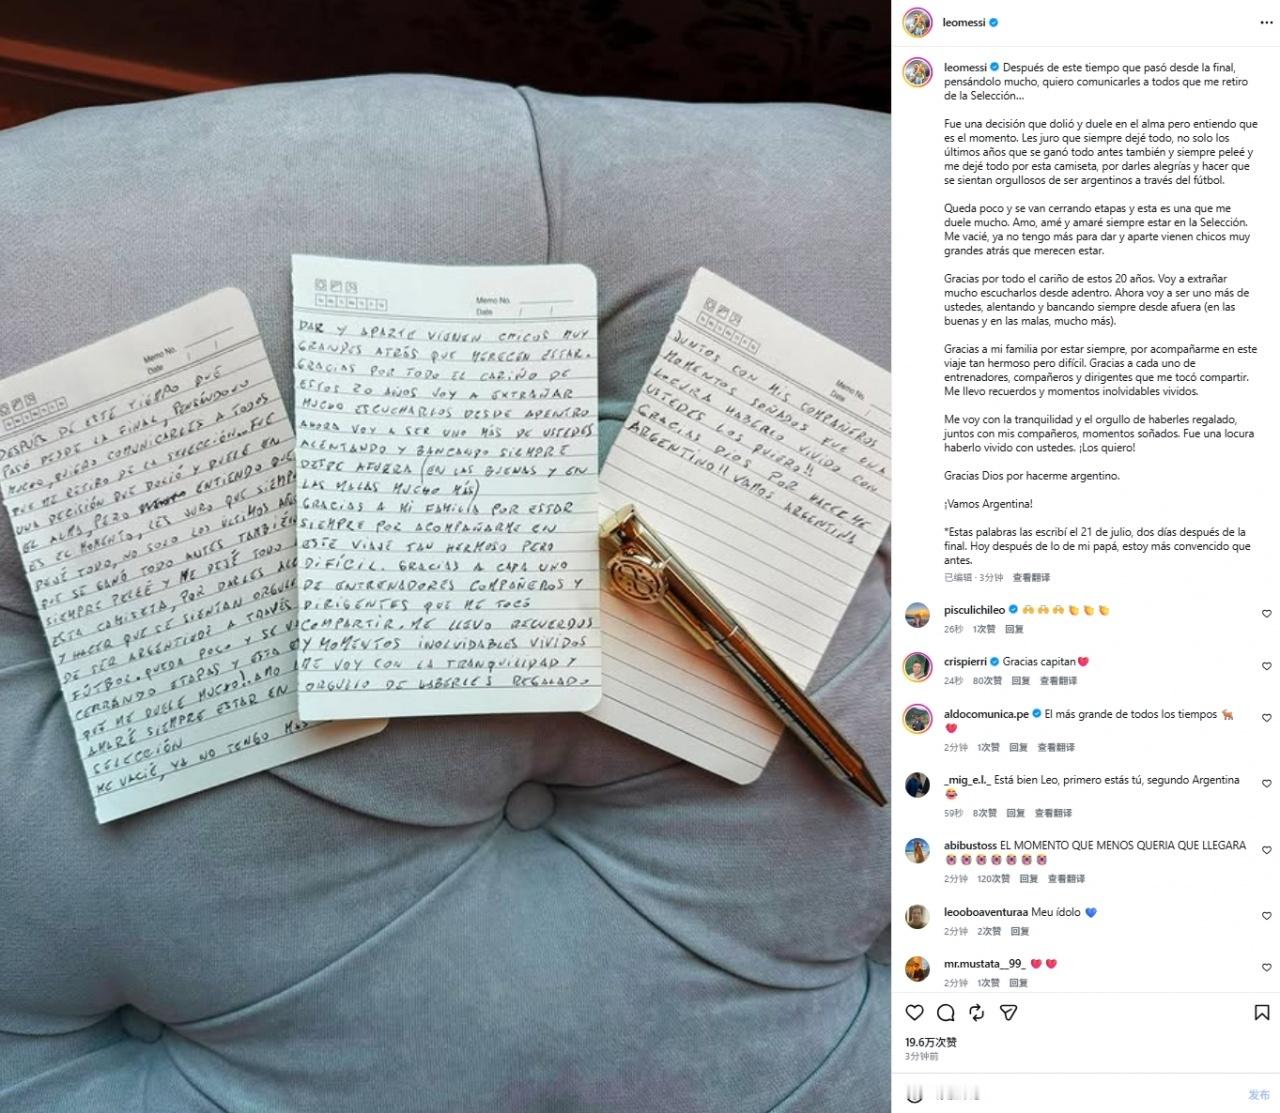 Memo No.
Date / /
DESPUÉS DE ESTE TIEMPO QUE
PASÓ DESDE LA FINAL, PENSÁNDOLO
MUCHO, QUIERO COMUNICARLES A TODOS
QUE ME RETIRO DE LA SELECCIÓN... FUE
UNA DECISIÓN QUE DOLIÓ Y DUELE EN
EL ALMA, PERO ENTIENDO QUE
ES EL MOMENTO, LES JURO QUE SIEMPRE
DEJÉ TODO, NO SOLO LOS ÚLTIMOS AÑOS
QUE SE GANÓ TODO ANTES TAMBIÉN
SIEMPRE PELEÉ Y ME DEJÉ TODO
ESTA CAMISETA, POR DARLES
Y HACER QUE SE SIENTAN
DE SER ARGENTINOS A TRAVÉS
FÚTBOL. QUEDA POCO Y SE VAN
CERRANDO ETAPAS Y ESTA
QUE ME DUELE MUCHO!. AMO
AMARÉ SIEMPRE ESTAR EN
SELECCIÓN
ME VACIÉ, YA NO TENGO MÁS
Memo No.
Date / /
DAR Y APARTE VIENEN CHICOS MUY
GRANDES ATRÁS QUE MERECEN ESTAR.
GRACIAS POR TODO EL CARIÑO DE
ESTOS 20 AÑOS VOY A EXTRAÑAR
MUCHO ESCUCHARLOS DESDE ADENTRO
AHORA VOY A SER UNO MÁS DE USTEDES
ALENTANDO Y BANCANDO SIEMPRE
DESDE AFUERA (EN LAS BUENAS Y EN
LAS MALAS MUCHO MÁS)
GRACIAS A MI FAMILIA POR ESTAR
SIEMPRE POR ACOMPAÑARME EN
ESTE VIAJE TAN HERMOSO PERO
DIFÍCIL. GRACIAS A CADA UNO
DE ENTRENADORES COMPAÑEROS Y
DIRIGENTES QUE ME TOCÓ
COMPARTIR. ME LLEVO RECUERDOS
Y MOMENTOS INOLVIDABLES VIVIDOS
ME VOY CON LA TRANQUILIDAD Y
ORGULLO DE HABERLES REGALADO
Memo No.
Date
JUNTOS CON MIS COMPAÑEROS
MOMENTOS SOÑADOS FUE UNA
LOCURA HABERLO VIVIDO CON
USTEDES LOS QUIERO!!
GRACIAS DIOS POR HACERME
ARGENTINO!! VAMOS ARGENTINA
leomessi
leomessi Después de este tiempo que pasó desde la final,
pensándolo mucho, quiero comunicarles a todos que me retiro
de la Selección...
Fue una decisión que dolió y duele en el alma pero entiendo que
es el momento. Les juro que siempre dejé todo, no solo los
últimos años que se ganó todo antes también y siempre peleé y
me dejé todo por esta camiseta, por darles alegrías y hacer que
se sientan orgullosos de ser argentinos a través del fútbol.
Queda poco y se van cerrando etapas y esta es una que me
duele mucho. Amo, amé y amaré siempre estar en la Selección.
Me vacié, ya no tengo más para dar y aparte vienen chicos muy
grandes atrás que merecen estar.
Gracias por todo el cariño de estos 20 años. Voy a extrañar
mucho escucharlos desde adentro. Ahora voy a ser uno más de
ustedes, alentando y bancando siempre desde afuera (en las
buenas y en las malas, mucho más).
Gracias a mi familia por estar siempre, por acompañarme en este
viaje tan hermoso pero difícil. Gracias a cada uno de
entrenadores, compañeros y dirigentes que me tocó compartir.
Me llevo recuerdos y momentos inolvidables vividos.
Me voy con la tranquilidad y el orgullo de haberles regalado,
juntos con mis compañeros, momentos soñados. Fue una locura
haberlo vivido con ustedes. ¡Los quiero!
Gracias Dios por hacerme argentino.
¡Vamos Argentina!
*Estas palabras las escribí el 21 de julio, dos días después de la
final. Hoy después de lo de mi papá, estoy más convencido que
antes.
已编辑 · 3分钟 查看翻译
pisculichileo 🙌🙌🙌👏👏👏
26秒 1次赞 回复
crispierri Gracias capitan❤️
24秒 80次赞 回复 查看翻译
aldocomunica.pe El más grande de todos los tiempos 🐐
❤️
2分钟 1次赞 回复 查看翻译
_mig_e.l._ Está bien Leo, primero estás tú, segundo Argentina
😂
59秒 8次赞 回复 查看翻译
abibustoss EL MOMENTO QUE MENOS QUERIA QUE LLEGARA
😭😭😭😭😭😭😭
2分钟 120次赞 回复 查看翻译
leooboaventuraa Meu ídolo 💙
2分钟 2次赞 回复
mr.mustata__99_ ❤️ ❤️
2分钟 1次赞 回复
19.6万次赞
3分钟前
发布